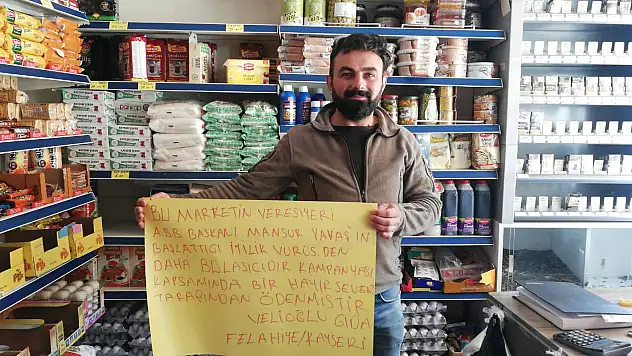 BU MARKETİN VERESİYELERİ
ABB BAŞKANI MANSUR YAVAŞ'IN
BAŞLATTIĞI İYİLİK VÜRÜS.DEN
DAHA BULAŞICIDIR KAMPANYASI
KAPSAMINDA BİR HAYIRSEVER
TARAFINDAN ÖDENMİŞTİR
VELİOĞLU GIDA
FELAHİYE/KAYSERİ